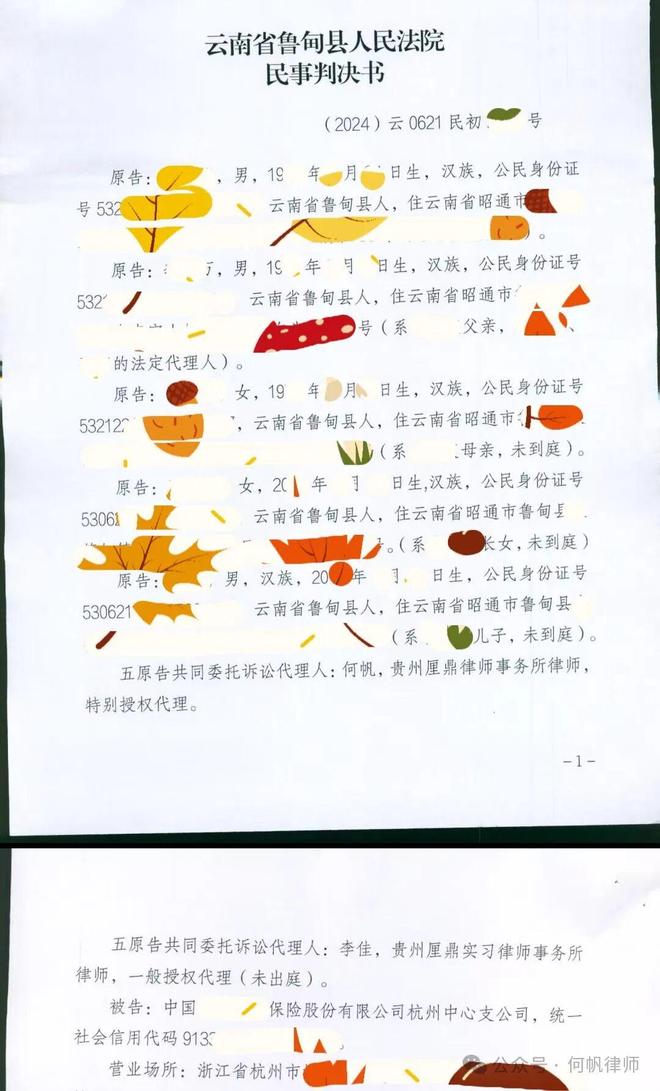 云南省鲁甸县人民法院
民事判决书
（2024）云 0621 民初 号
原告： ，男，19 年 月 日生，汉族，公民身份证
号 532 云南省鲁甸县人，住云南省昭通市
。
原告： 万，男，19 年 月 日生，汉族，公民身份证号
532 云南省鲁甸县人，住云南省昭通市
号（系 父亲， 、
的法定代理人）。
原告： 女，19 年 月 日生，汉族，公民身份证号
532122 ，云南省鲁甸县人，住云南省昭通市
（系 母亲，未到庭）。
原告： 女，20 年 月 日生,汉族，公民身份证号
5306 云南省鲁甸县人，住云南省昭通市鲁甸县
。（系 长女，未到庭）
原告： 男，汉族，20 年 月 日生，公民身份证号
530621 云南省鲁甸县人，住云南省昭通市鲁甸县
（系 儿子，未到庭）。
五原告共同委托诉讼代理人：何帆，贵州厘鼎律师事务所律师，
特别授权代理。
-1-
五原告共同委托诉讼代理人：李佳，贵州厘鼎实习律师事务所
律师，一般授权代理（未出庭）。
被告：中国 保险股份有限公司杭州中心支公司，统一
社会信用代码 913
营业场所：浙江省杭州市
公众号·何帆律师